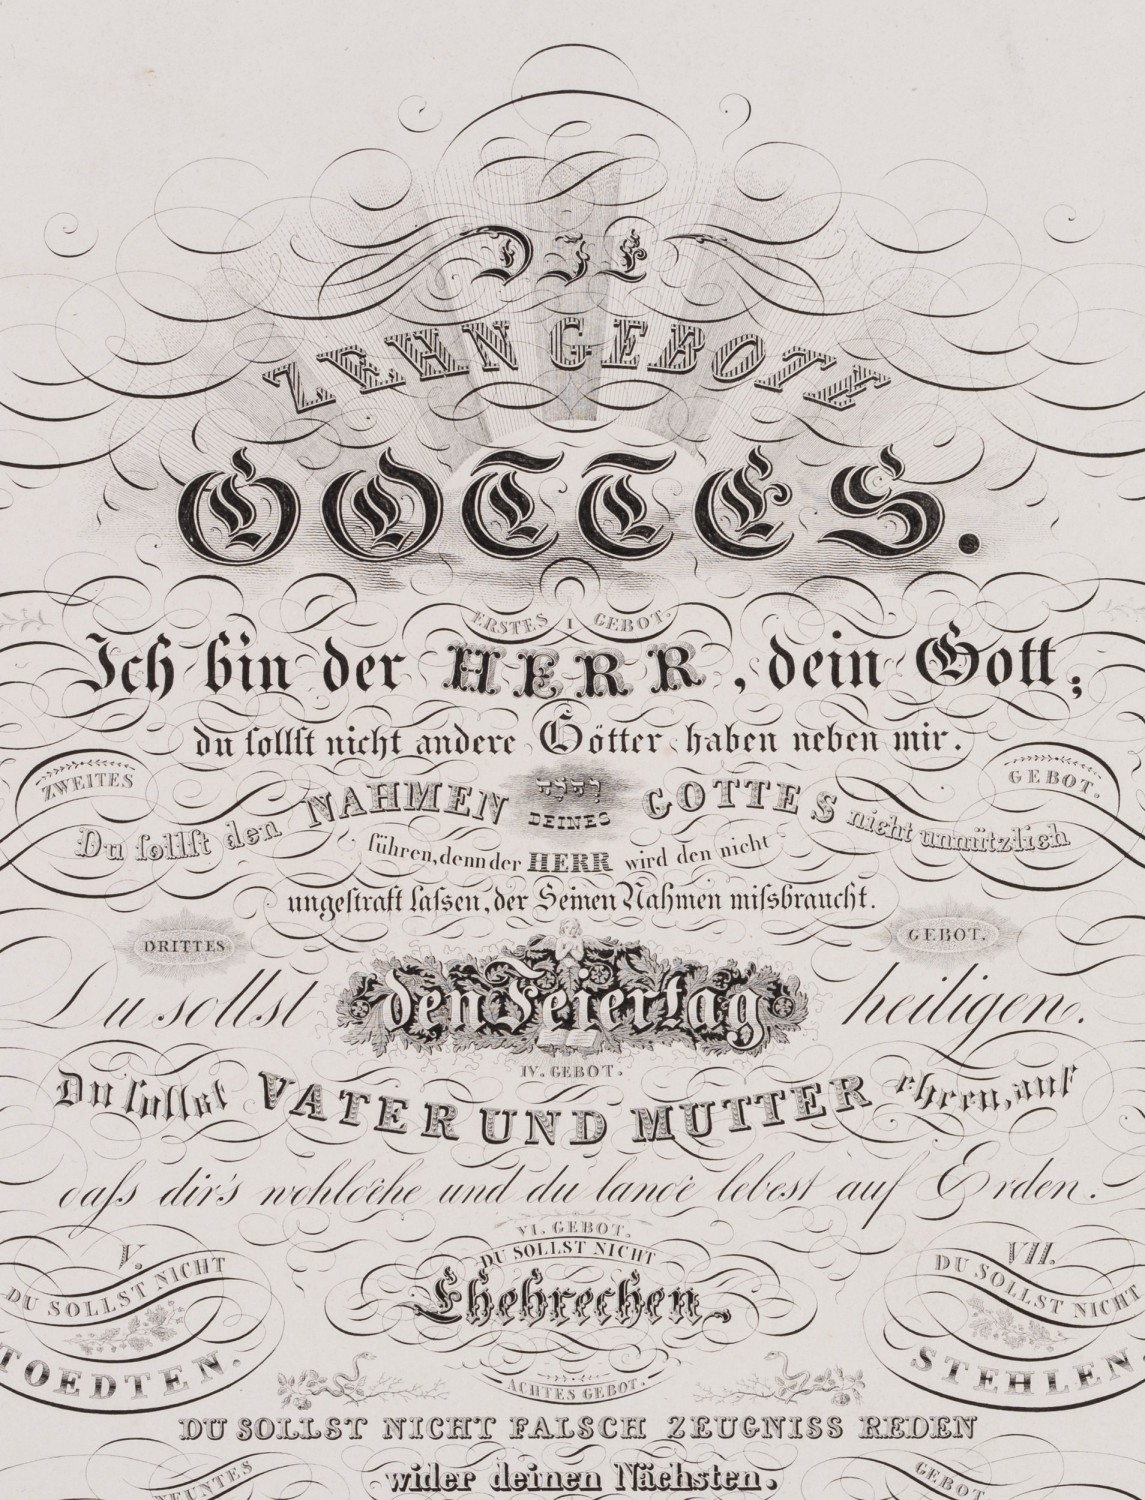 DIE
ZEHN GEBOTE
GOTTES.
ERSTES 1 GEBOT.
Ich bin der HERR, dein Gott;
du sollst nicht andere Götter haben neben mir.
ZWEITES GEBOT.
Du sollst den NAHMEN יהוה DEINES GOTTES nicht unnützlich
führen, denn der HERR wird den nicht
ungestraft lassen, der Seinen Nahmen missbraucht.
DRITTES GEBOT.
Du sollst den Feiertag heiligen.
IV. GEBOT.
Du sollst VATER UND MUTTER ehren, auf
dass dir's wohlgehe und du lange lebest auf Erden.
V.
DU SOLLST NICHT
TOEDTEN.
VI. GEBOT.
DU SOLLST NICHT
Ehebrechen.
VII.
DU SOLLST NICHT
STEHLEN.
ACHTES GEBOT.
DU SOLLST NICHT FALSCH ZEUGNISS REDEN
wider deinen Nächsten.
NEUNTES GEBOT